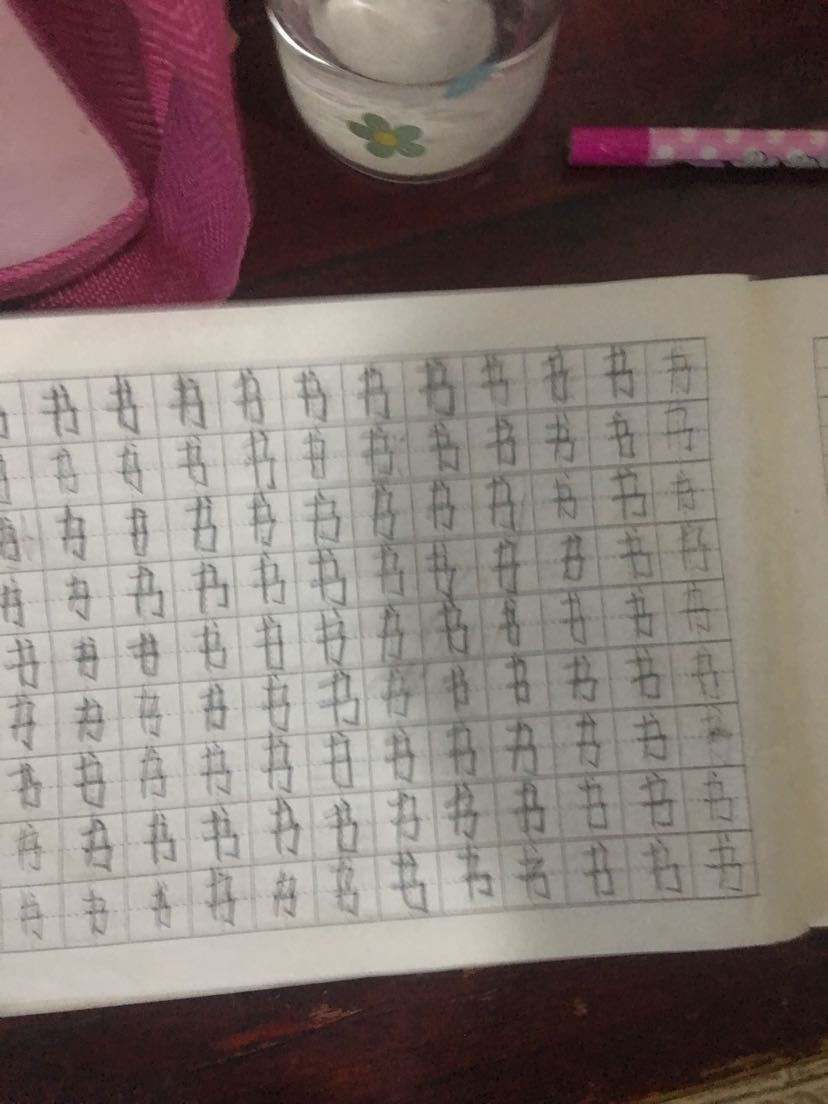 书书书书书书书书书书书
书书书书书书书书书书书
书书书书书书书书书书书书
书书书书书书书书书书书书
书书书书书书书书书书书书
书书书书书书书书书书书书
书书书书书书书书书书书
书书书书书书书书书书书书
书书书书书书书书书书书书